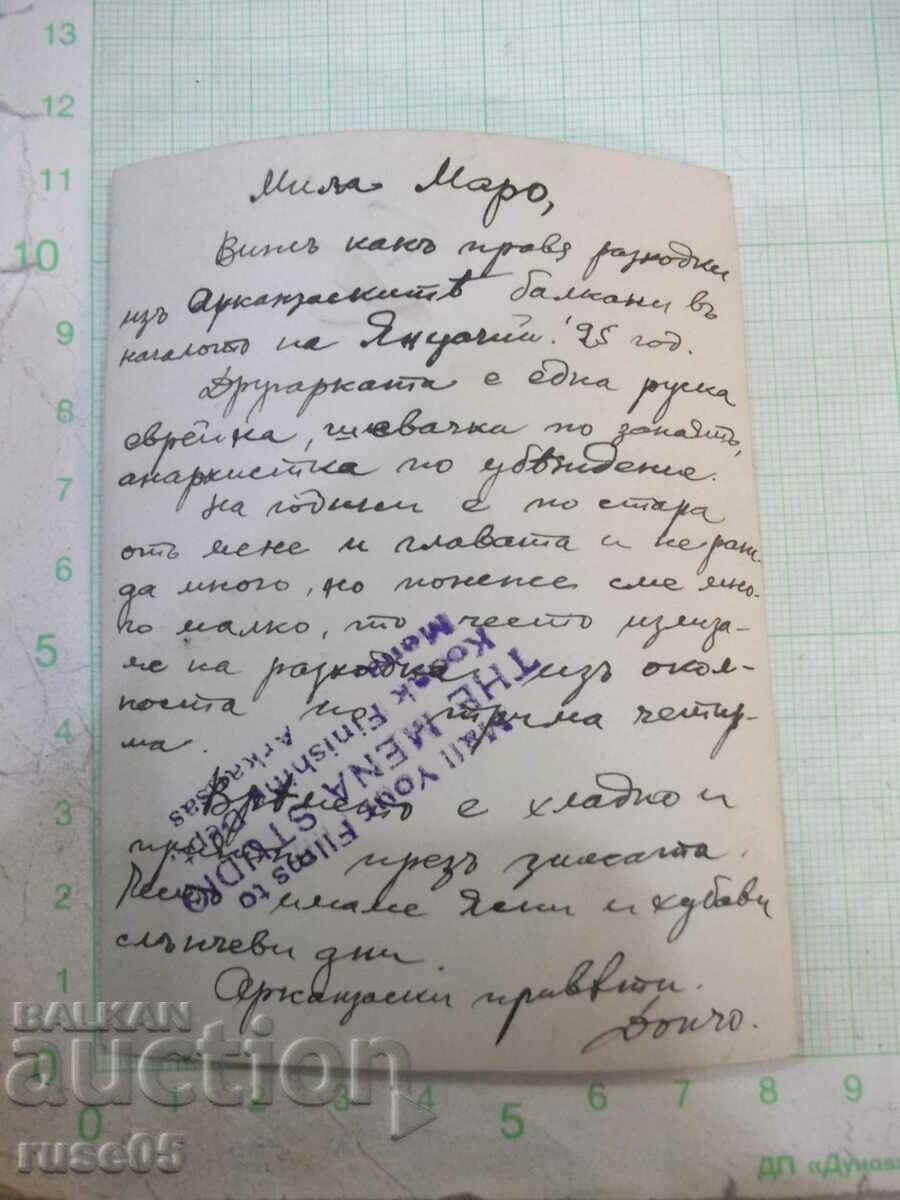 Мила Маро,
Вижъ какъ правя разходки
изъ Арканзаскитѣ балкани въ
началото на Януарий! 25 год.
Другарката е една руска
еврейка, шевачка по занаятъ,
анархистка по убѣждение.
На години е по стара
отъ мене и главата и не раж-
да много, но понеже сме мно-
го малко, то често излиза-
ме на разходка изъ окол-
ността по трима четир-
ма.
Врѣмето е хладко и
презъ зимата.
Често имаме ясни и хубави
слънчеви дни.
Арканзаски привѣти.
Дончо.
Mail Your Films to
THE MENA STUDIO
Kodak Finishing Dept.
Mena Arkansas
13
12
11
10
9
8
7
6
5
4
3
2
1
0
0 1 2 3 4 5 6 7 8 9
ДП «Дунав
BALKAN
auction
ruse05